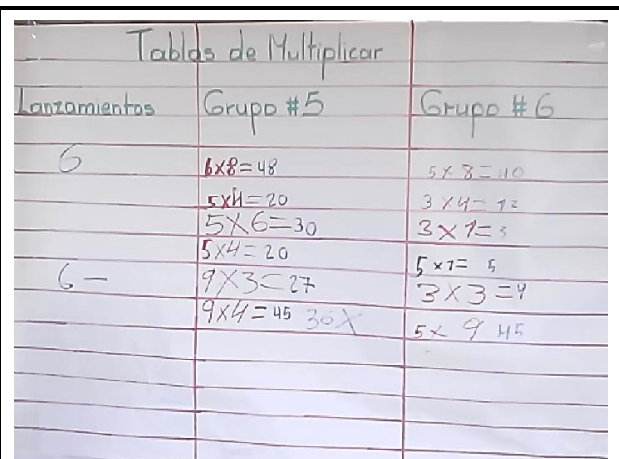 Tablas de Multiplicar
Lanzamientos Grupo #5 Grupo #6
6 6x8=48 5x8=40
5x4=20 3x4=12
5x6=30 3x1=3
5x4=20 5x1= 5
6- 9x3=27 3x3=9
9x4=45 36X 5x 9 45